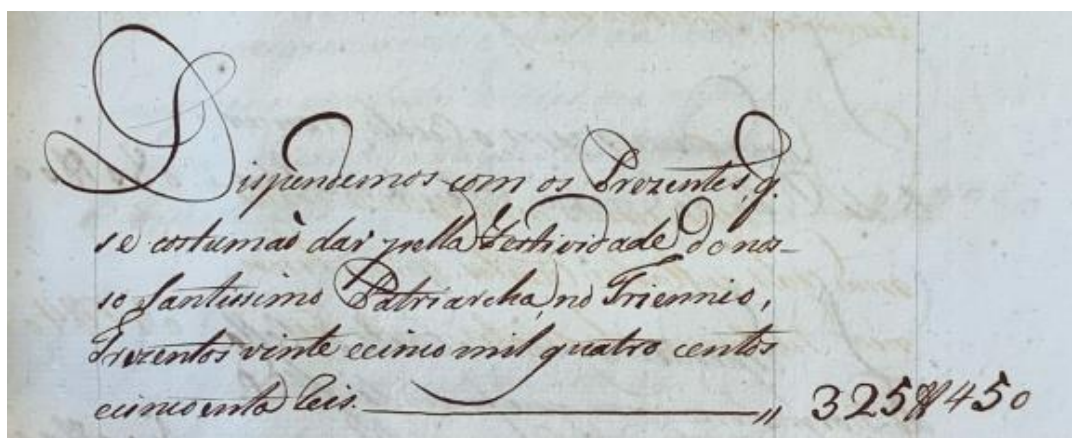 Dispendemos com os Prezentes, q.
se costumaõ dar pella Festividade do nos-
so Santissimo Patriarcha, no Triennio,
Trezentos vinte e cinco mil quatro centos
e cincoenta Reis. ——— " 325$450